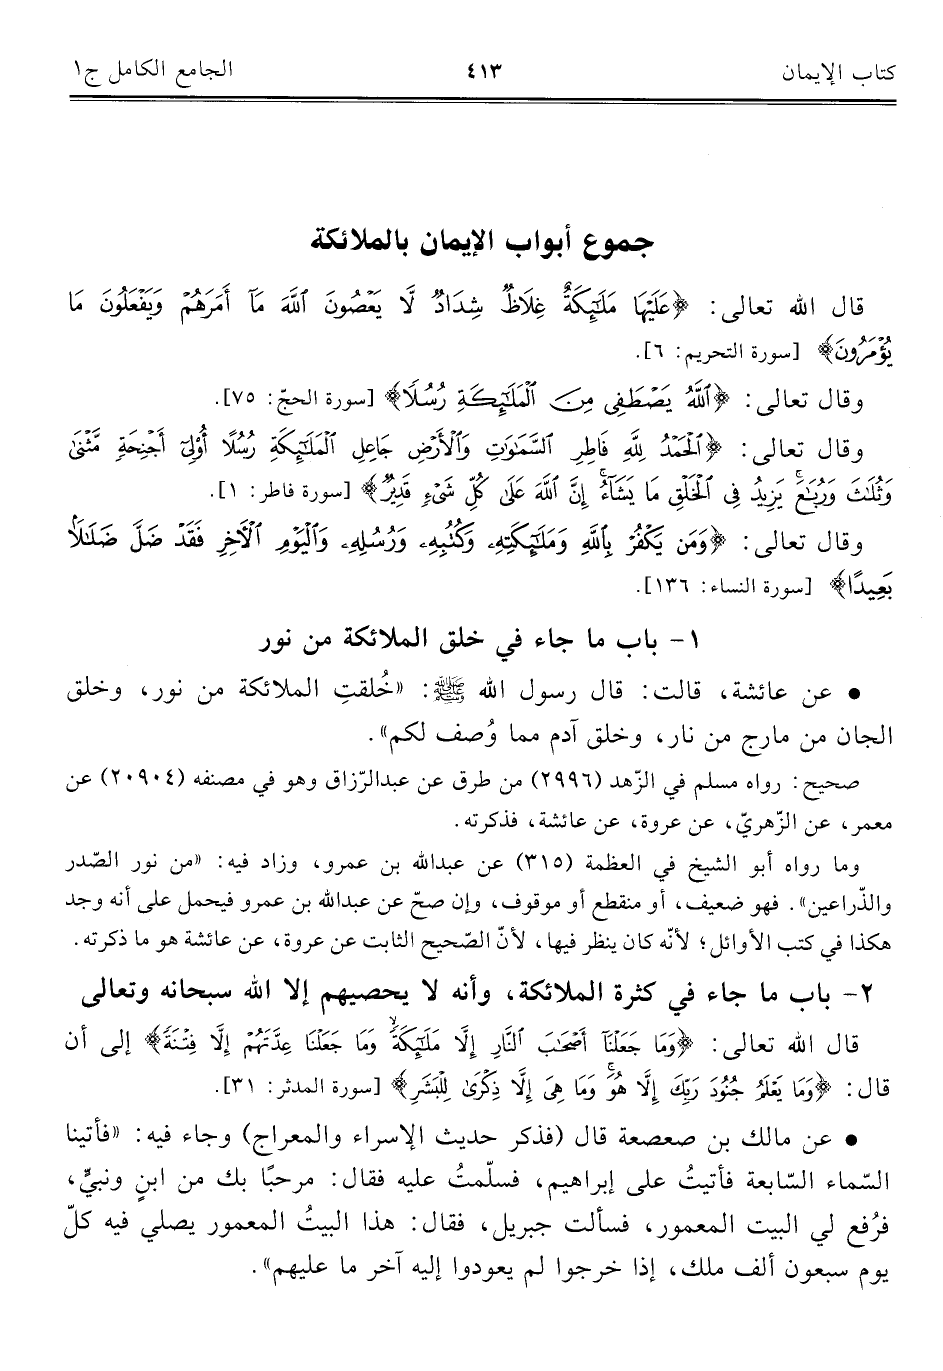 كتاب الإيمان ٤١٣ الجامع الكامل ج١
جموع أبواب الإيمان بالملائكة
قال الله تعالى: ﴿عَلَيْهَا مَلَٰٓئِكَةٌ غِلَاظٌ شِدَادٌ لَّا يَعْصُونَ ٱللَّهَ مَآ أَمَرَهُمْ وَيَفْعَلُونَ مَا
يُؤْمَرُونَ﴾ [سورة التحريم: ٦].
وقال تعالى: ﴿ٱللَّهُ يَصْطَفِى مِنَ ٱلْمَلَٰٓئِكَةِ رُسُلًا﴾ [سورة الحجّ: ٧٥].
وقال تعالى: ﴿ٱلْحَمْدُ لِلَّهِ فَاطِرِ ٱلسَّمَٰوَٰتِ وَٱلْأَرْضِ جَاعِلِ ٱلْمَلَٰٓئِكَةِ رُسُلًا أُو۟لِىٓ أَجْنِحَةٍ مَّثْنَىٰ
وَثُلَٰثَ وَرُبَٰعَ ۚ يَزِيدُ فِى ٱلْخَلْقِ مَا يَشَآءُ ۚ إِنَّ ٱللَّهَ عَلَىٰ كُلِّ شَىْءٍ قَدِيرٌ﴾ [سورة فاطر: ١].
وقال تعالى: ﴿وَمَن يَكْفُرْ بِٱللَّهِ وَمَلَٰٓئِكَتِهِۦ وَكُتُبِهِۦ وَرُسُلِهِۦ وَٱلْيَوْمِ ٱلْءَاخِرِ فَقَدْ ضَلَّ ضَلَٰلًۢا
بَعِيدًا﴾ [سورة النساء: ١٣٦].
١- باب ما جاء في خلق الملائكة من نور
• عن عائشة، قالت: قال رسول الله ﷺ: «خُلقتِ الملائكة من نور، وخلق
الجان من مارج من نار، وخلق آدم مما وُصف لكم».
صحيح: رواه مسلم في الزّهد (٢٩٩٦) من طرق عن عبدالرّزاق وهو في مصنفه (٢٠٩٠٤) عن
معمر، عن الزّهريّ، عن عروة، عن عائشة، فذكرته.
وما رواه أبو الشيخ في العظمة (٣١٥) عن عبدالله بن عمرو، وزاد فيه: «من نور الصّدر
والذّراعين». فهو ضعيف، أو منقطع أو موقوف، وإن صحّ عن عبدالله بن عمرو فيحمل على أنه وجد
هكذا في كتب الأوائل؛ لأنّه كان ينظر فيها، لأنّ الصّحيح الثابت عن عروة، عن عائشة هو ما ذكرته.
٢- باب ما جاء في كثرة الملائكة، وأنه لا يحصيهم إلا الله سبحانه وتعالى
قال الله تعالى: ﴿وَمَا جَعَلْنَآ أَصْحَٰبَ ٱلنَّارِ إِلَّا مَلَٰٓئِكَةً ۙ وَمَا جَعَلْنَا عِدَّتَهُمْ إِلَّا فِتْنَةً﴾ إلى أن
قال: ﴿وَمَا يَعْلَمُ جُنُودَ رَبِّكَ إِلَّا هُوَ ۚ وَمَا هِىَ إِلَّا ذِكْرَىٰ لِلْبَشَرِ﴾ [سورة المدثر: ٣١].
• عن مالك بن صعصعة قال (فذكر حديث الإسراء والمعراج) وجاء فيه: «فأتينا
السّماء السّابعة فأتيتُ على إبراهيم، فسلّمتُ عليه فقال: مرحبًا بك من ابنٍ ونبيٍّ،
فرُفع لي البيت المعمور، فسألت جبريل، فقال: هذا البيتُ المعمور يصلي فيه كلّ
يوم سبعون ألف ملك، إذا خرجوا لم يعودوا إليه آخر ما عليهم».